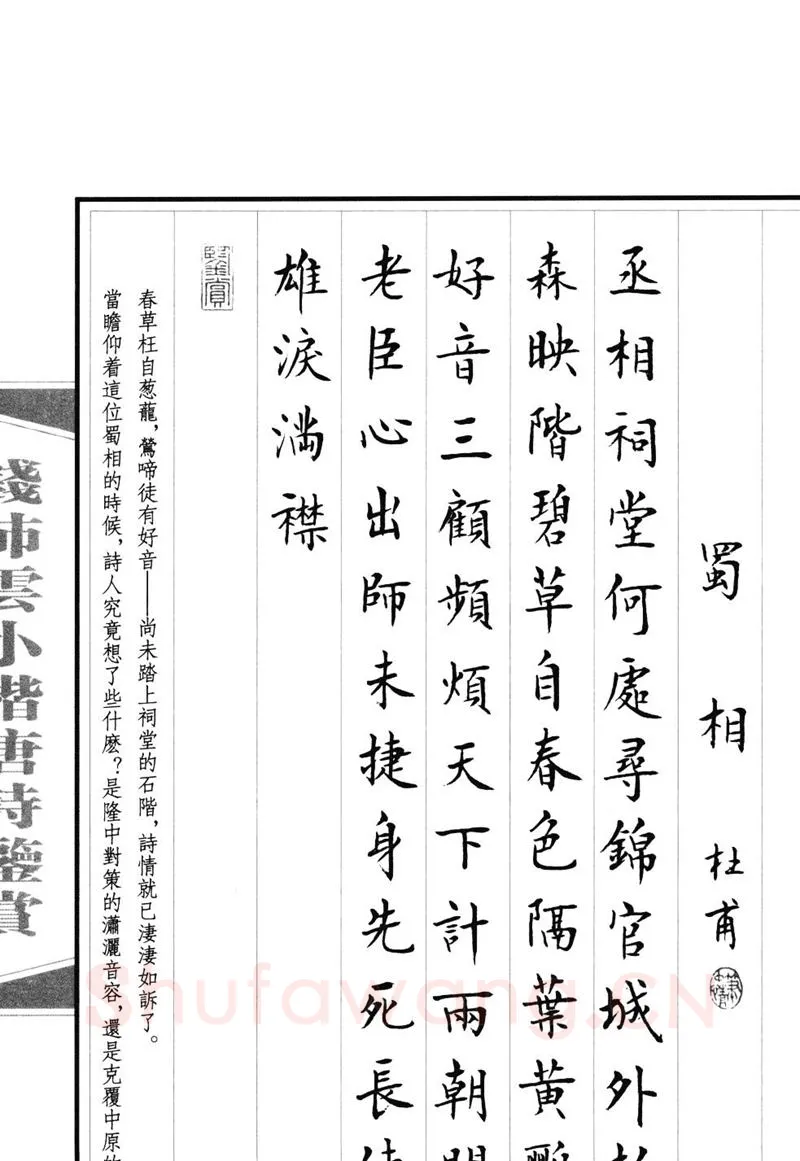 蜀相 杜甫
丞相祠堂何處尋錦官城外
森映階碧草自春色隔葉黄鸝
好音三顧頻煩天下計兩朝開
老臣心出師未捷身先死長使
雄淚满襟
鑒賞
春草枉自葱蘢，鶯啼徒有好音——尚未踏上祠堂的石階，詩情就已淒淒如訴了。
當瞻仰着這位蜀相的時候，詩人究竟想了些什麽？是隆中對策的瀟灑音容，還是克覆中原的
錢沛雲小楷唐詩鑒賞
Shufawang.CN